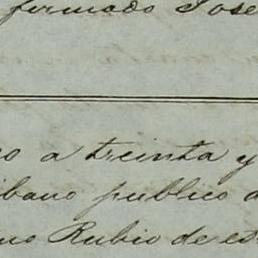 firmado Jose
co a treinta y
ibano publico d
no Rubio de es